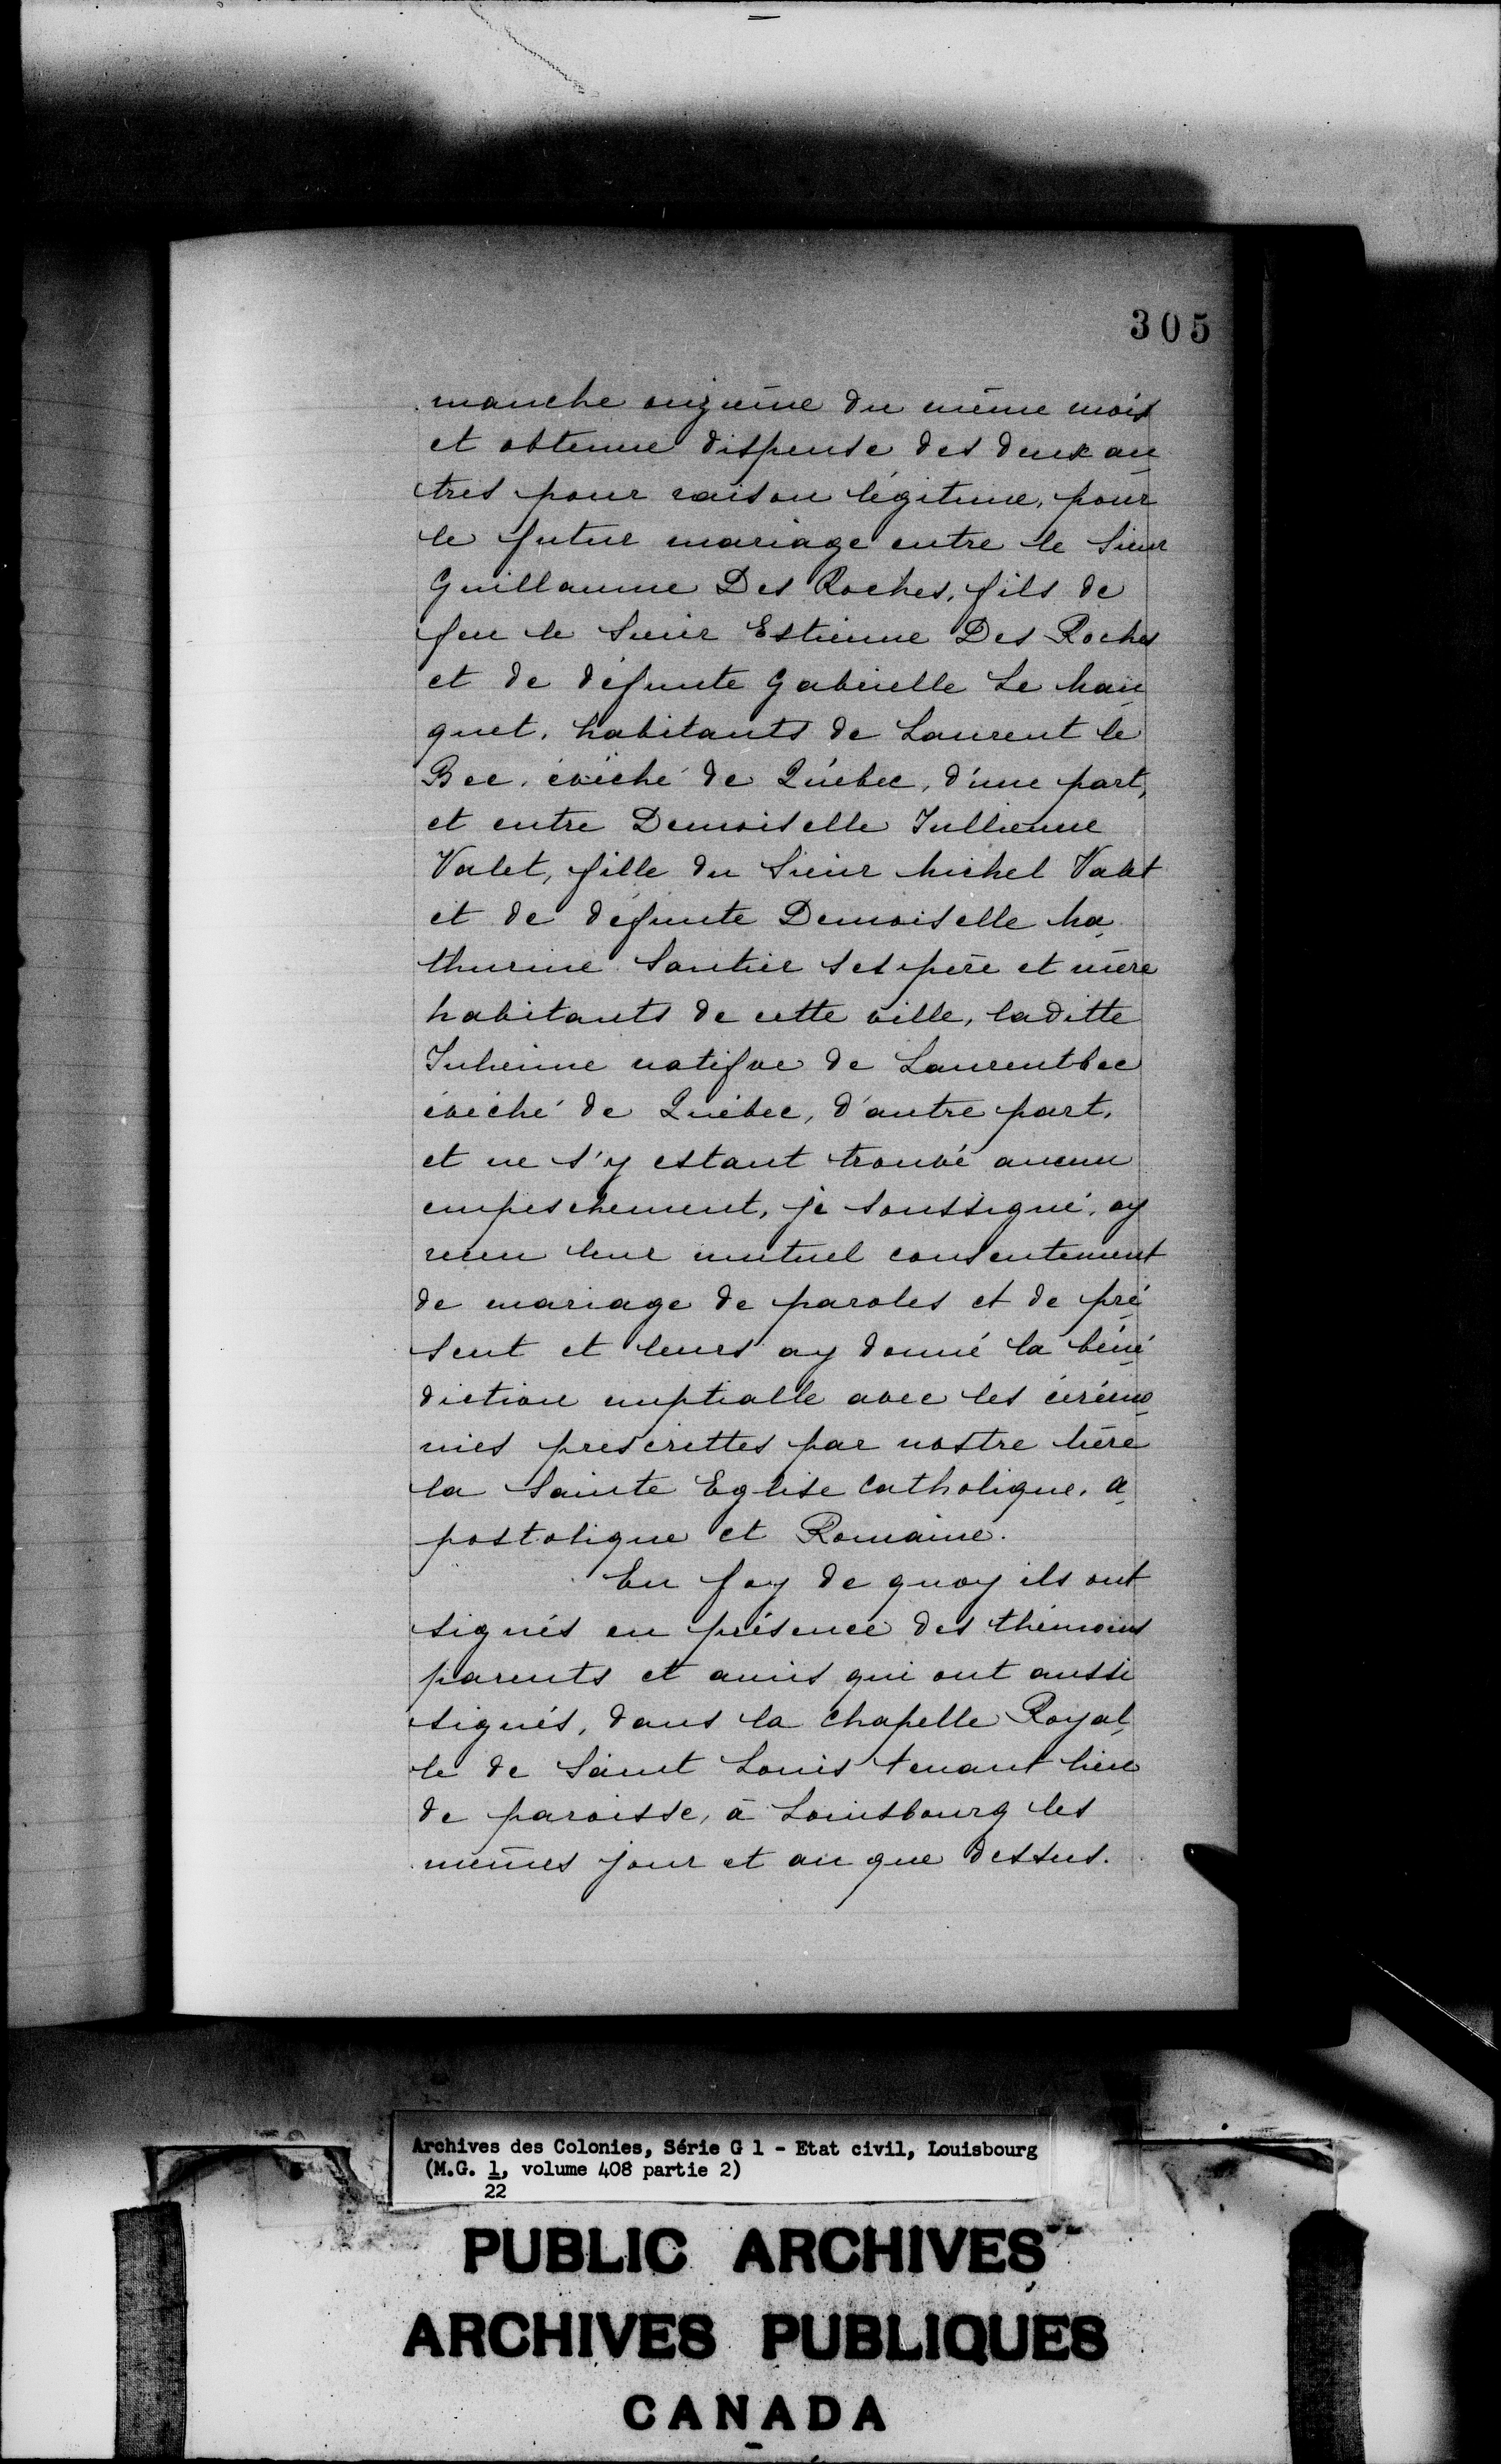 305
manche onzième du même mois
et obtenue dispense des deux au
tres pour raison légitime, pour
le futur mariage entre le Sieur
Guillaume Des Roches, fils de
feu le Sieur Estienne Des Roches
et de défunte Gabrielle Le Mau
guet, habitants de Laurent le
Bec, évêché de Québec, d'une part,
et entre Demoiselle Jullienne
Valet, fille du Sieur Michel Valet
et de défunte Demoiselle Ma
thurine Santier ses père et mère
habitants de cette ville, laditte
Julienne natifve de Laurentbec
évêché de Québec, d'autre part,
et ne s'y estant trouvé aucun
empeschement, je soussigné, ay
receu leur mutuel consentement
de mariage de paroles et de pré
sent et leurs ay donné la béné
diction nuptialle avec les cérémo
nies prescrittes par nostre Mère
la Sainte Eglise Catholique, A
postolique et Romaine.
En foy de quoy ils ont
signés en présence des thémoins
parents et amis qui ont aussi
signés, dans la Chapelle Royal
le de Saint Louis tenant lieu
de paroisse, à Louisbourg les
mêmes jour et an que dessus.
Archives des Colonies, Série G 1 - Etat civil, Louisbourg
(M.G. 1, volume 408 partie 2)
22
PUBLIC ARCHIVES
ARCHIVES PUBLIQUES
CANADA